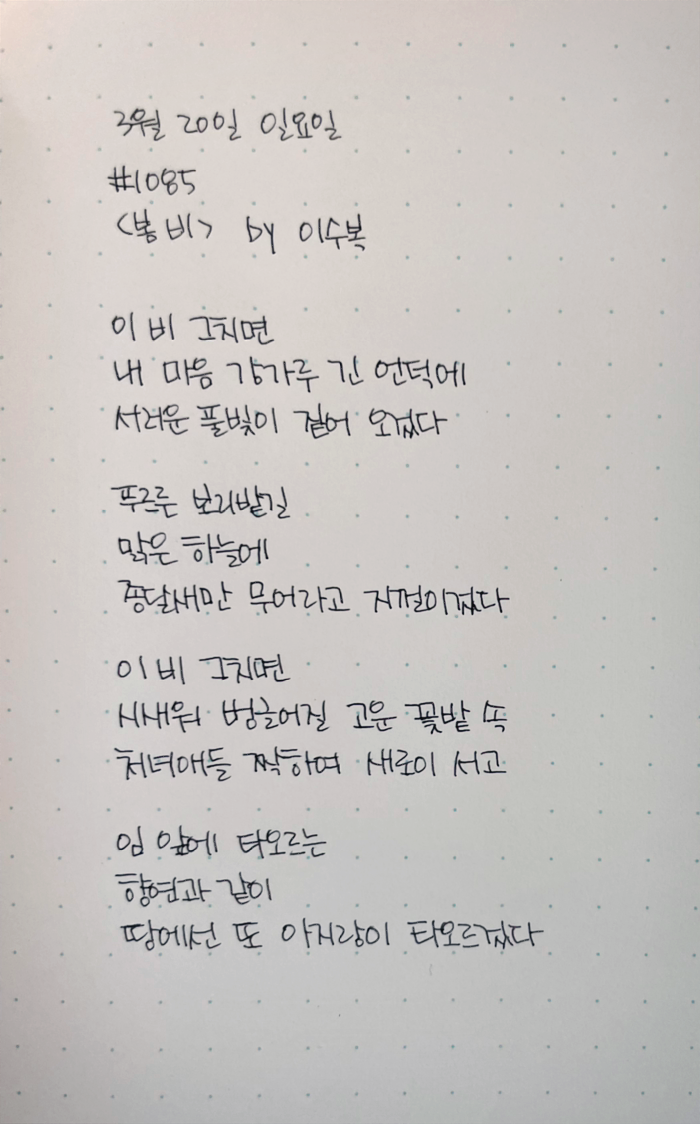 3월 20일 일요일
#1085
<봄비> by 이수복
이 비 그치면
내 마음 강가루 긴 언덕에
서러운 풀빛이 짙어 오겄다
푸르른 보리밭길
맑은 하늘에
종달새만 무어라고 지껄이겄다
이 비 그치면
시새워 벙글어질 고운 꽃밭 속
처녀애들 짝하여 새로이 서고
임 앞에 타오르는
향연과 같이
땅에선 또 아지랑이 타오르겄다